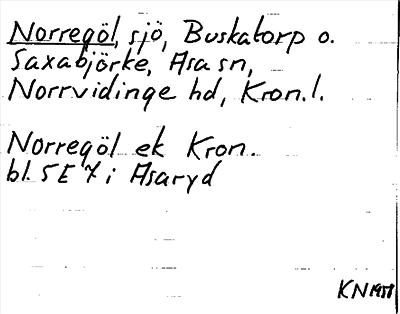 Norregöl, sjö, Buskatorp o.
Saxabjörke, Asa sn,
Norrvidinge hd, Kron. l.
Norregöl ek Kron.
bl. 5E 7 i Asaryd
KN 1951